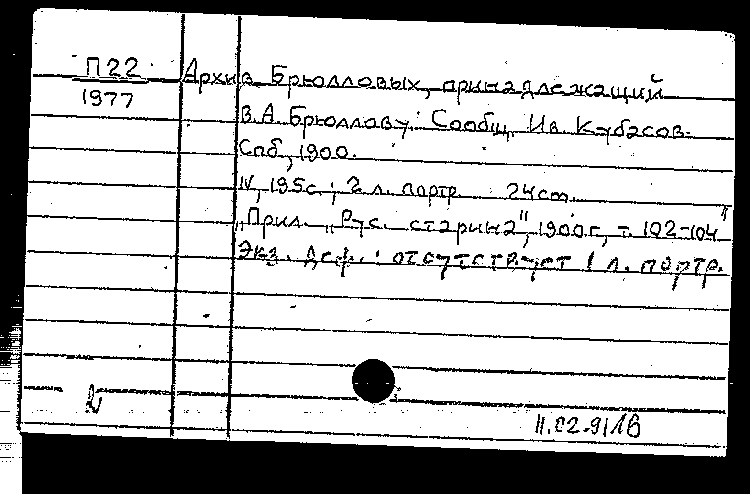 П22
1977
Архив Брюлловых, принадлежащий
В.А. Брюллову. Сообщ. Ив. Кубасов.
Спб., 1900.
IV, 195с.; 2 л. портр. 24cm.
„Прил. „Рус. старина", 1900г., т. 102-104"
Экз. деф.: отсутствует 1 л. портр.